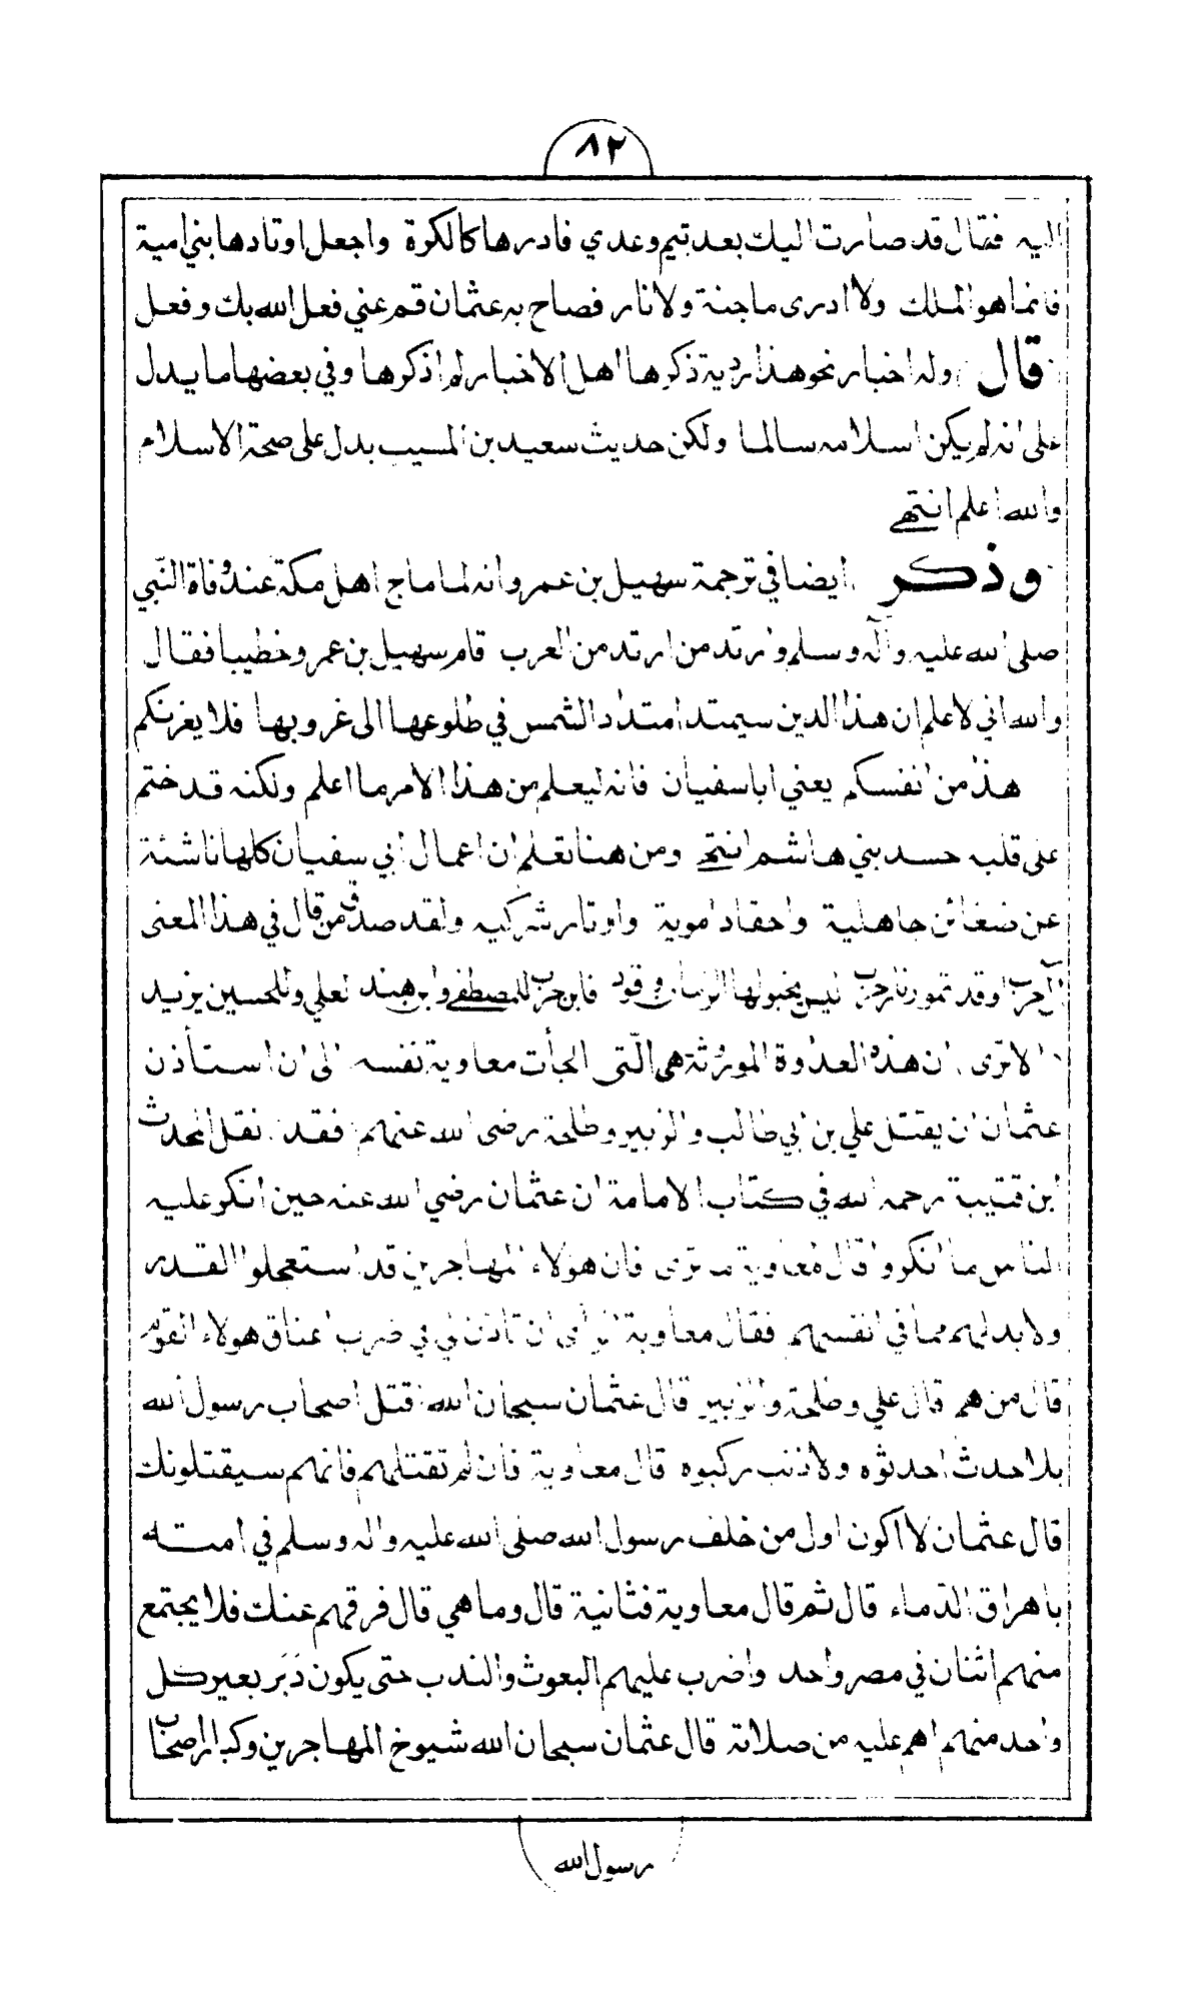 ٨٢
اليه فقال قد صارت اليك بعد تيم وعدي فادرها كالكرة واجعل اوتادها بني امية
فانما هو الملك ولا ادرى ما جنة ولا نار فصاح به عثمان قم عني فعل الله بك وفعل
قال وله اخبار نحو هذا ردية ذكرها اهل الاخبار لم اذكرها وفي بعضها ما يدل
على انه لم يكن اسلامه سالما ولكن حديث سعيد بن المسيب يدل على صحة الاسلام
والله اعلم انتهى
وذكر ايضا في ترجمة سهيل بن عمرو انه لما ماج اهل مكة عند وفاة النّبي
صلى الله عليه وآله وسلم وارتد من ارتد من العرب قام سهيل بن عمرو خطيبا فقال
والله اني لاعلم ان هذا الدين سيمتد امتداد الشمس في طلوعها الى غروبها فلا يغرنكم
هذا من انفسكم يعني ابا سفيان فانه ليعلم من هذا الامر ما اعلم ولكنه قد ختم
على قلبه حسد بني هاشم انتهى ومن هنا تعلم ان اعمال ابي سفيان كلها ناشئة
عن ضغائن جاهلية واحقاد اموية واوتار شركيه ولقد صدق من قال في هذا المعنى
آل حرب اوقدتمو نار حرب ليس يخبو لها الزمان وقود فابن حرب للمصطفى وابن هند لعلي وللحسين يزيد
الا ترى ان هذه العداوة الموروثة هي الّتي الجأت معاوية نفسه الى ان استأذن
عثمان ان يقتل علي بن ابي طالب والزبير وطلحة رضى الله عنهم فقد نقل المحدث
ابن قتيبة رحمه الله في كتاب الامامة ان عثمان رضي الله عنه حين انكر عليه
الناس ما انكروا قال لمعاوية ما ترى فان هولاء المهاجرين قد استعجلوا القدر
ولا بد لهم مما في انفسهم فقال معاوية الراى ان تاذن لي في ضرب اعناق هولاء القوم
قال من هم قال علي وطلحة والزبير قال عثمان سبحان الله اقتل اصحاب رسول الله
بلا حدث احدثوه ولا ذنب ركبوه قال معاوية فان لم تقتلهم فانهم سيقتلونك
قال عثمان لا اكون اول من خلف رسول الله صلى الله عليه واله وسلم في امته
باهراق الدّماء قال ثم قال معاوية فثانية قال وما هي قال فرقهم عنك فلا يجتمع
منهم اثنان في مصر واحد واضرب عليهم البعوث والندب حتى يكون دَبَر بعير كل
واحد منهم اهم عليه من صلاته قال عثمان سبحان الله شيوخ المهاجرين وكبار اصحاب
رسول الله